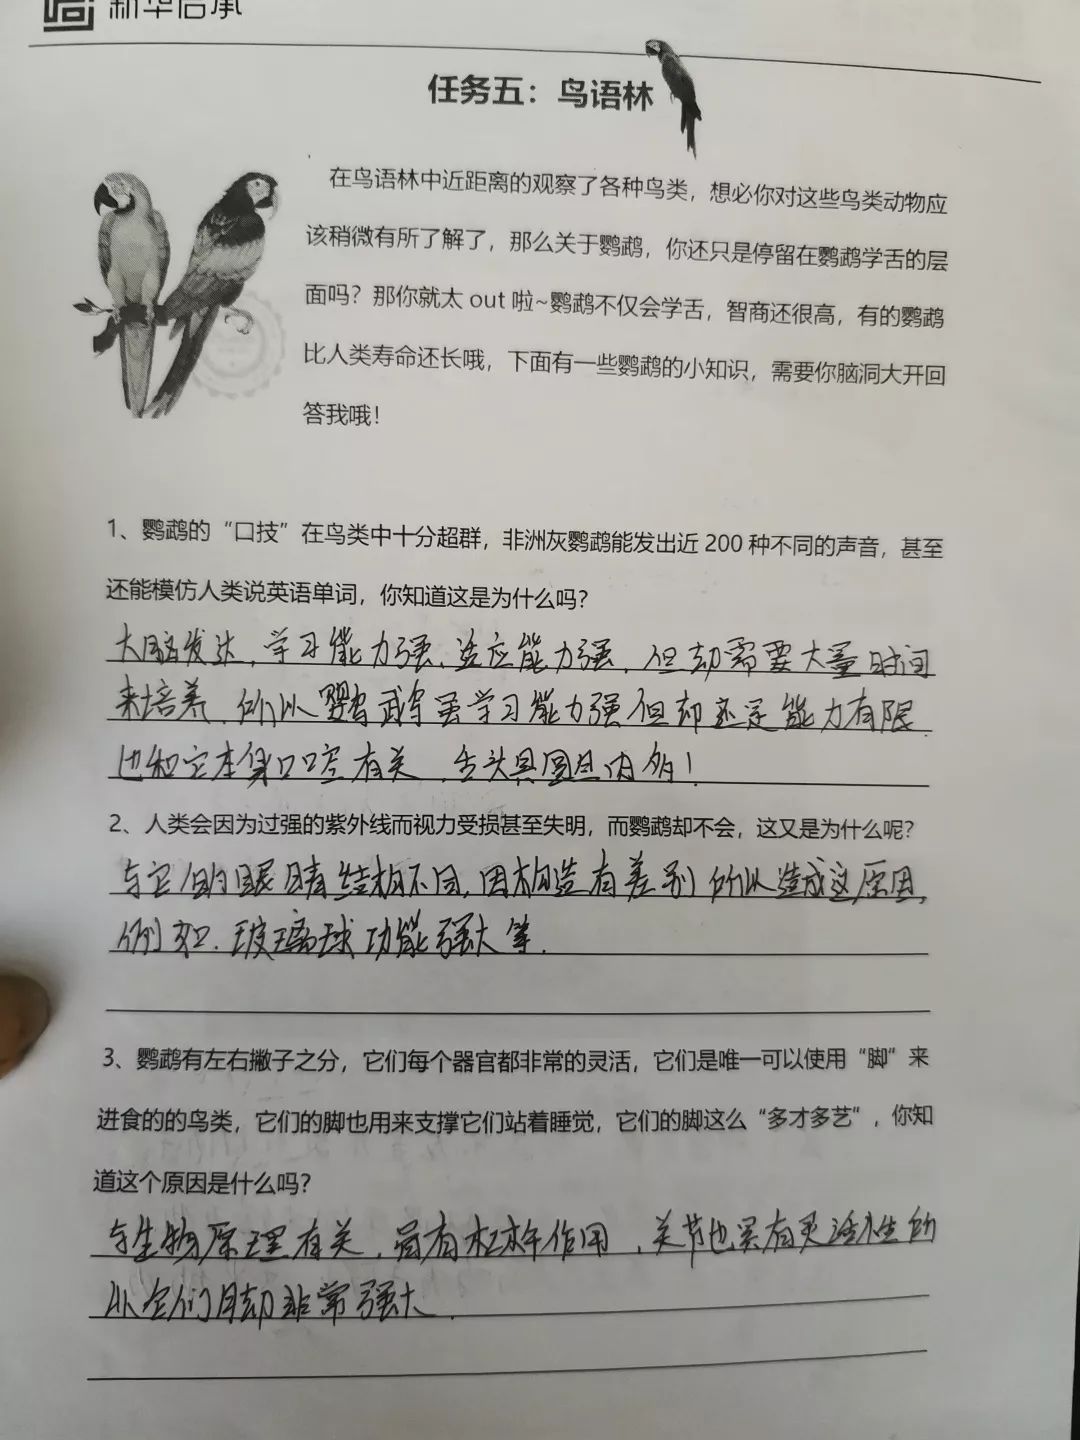 新华启承
任务五：鸟语林
在鸟语林中近距离的观察了各种鸟类，想必你对这些鸟类动物应
该稍微有所了解了，那么关于鹦鹉，你还只是停留在鹦鹉学舌的层
面吗？那你就太 out 啦~鹦鹉不仅会学舌，智商还很高，有的鹦鹉
比人类寿命还长哦，下面有一些鹦鹉的小知识，需要你脑洞大开回
答我哦！
1、鹦鹉的“口技”在鸟类中十分超群，非洲灰鹦鹉能发出近 200 种不同的声音，甚至
还能模仿人类说英语单词，你知道这是为什么吗？
大脑发达，学习能力强、适应能力强，但却需要大量时间
来培养，所以鹦鹉虽学习能力强但却还是能力有限，
也和它本身口腔有关，舌头具圆且肉多！
2、人类会因为过强的紫外线而视力受损甚至失明，而鹦鹉却不会，这又是为什么呢？
与它们的眼睛结构不同，因构造有差别所以造成这原因，
例如，玻璃球功能强大等．
3、鹦鹉有左右撇子之分，它们每个器官都非常的灵活，它们是唯一可以使用“脚”来
进食的的鸟类，它们的脚也用来支撑它们站着睡觉，它们的脚这么“多才多艺”，你知
道这个原因是什么吗？
与生物原理有关，具有杠杆作用，关节也累有灵活性的
从它们月却非常强大．